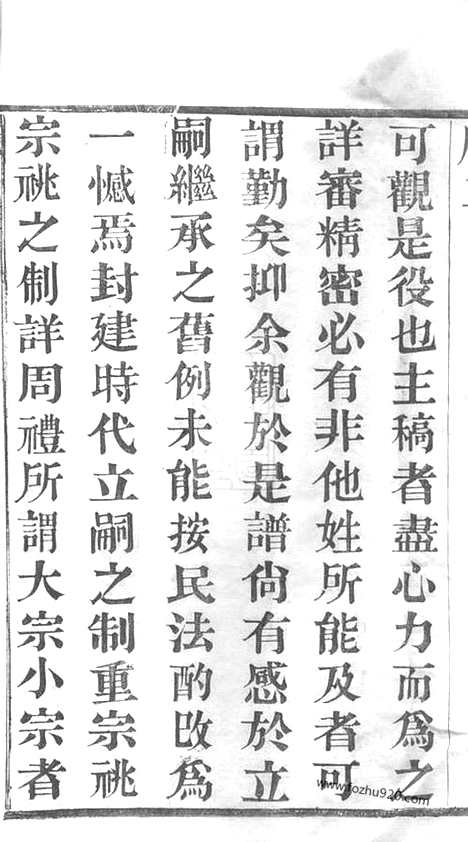 可觀是役也主稿者盡心力而爲之
詳審精密必有非他姓所能及者可
謂勤矣抑余觀於是譜尙有感於立
嗣繼承之舊例未能按民法酌改爲
一憾焉封建時代立嗣之制重宗祧
宗祧之制詳周禮所謂大宗小宗者
www.fozhu920.com